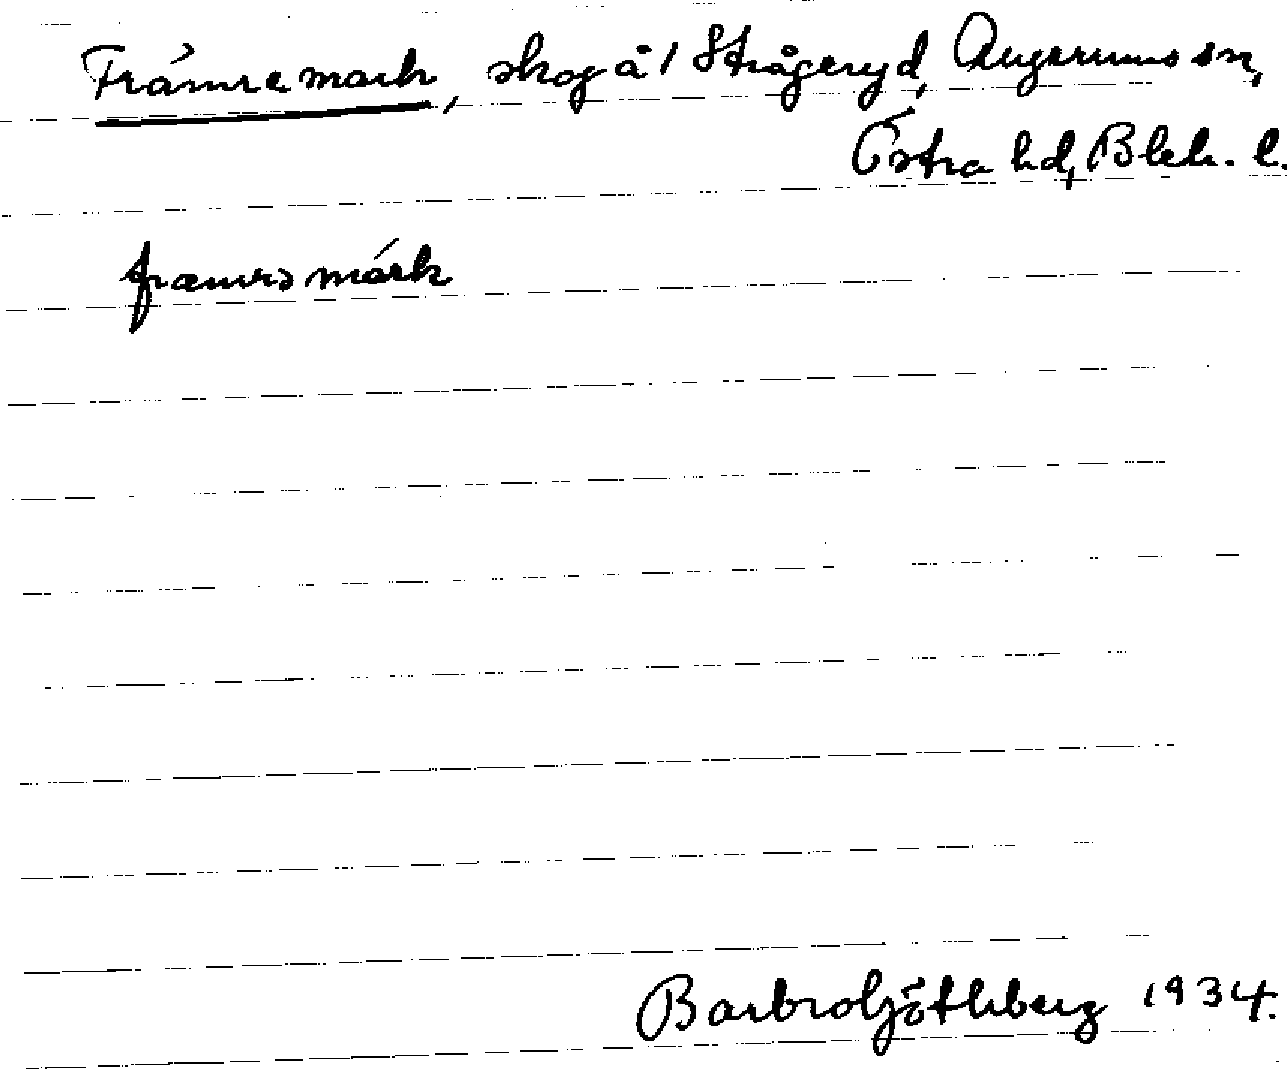 Främre mark, skog å 1 Strågeryd, Augerums sn,
Östra hd, Blek. l.
fræmrə márk
Barbro Götlberg 1934.